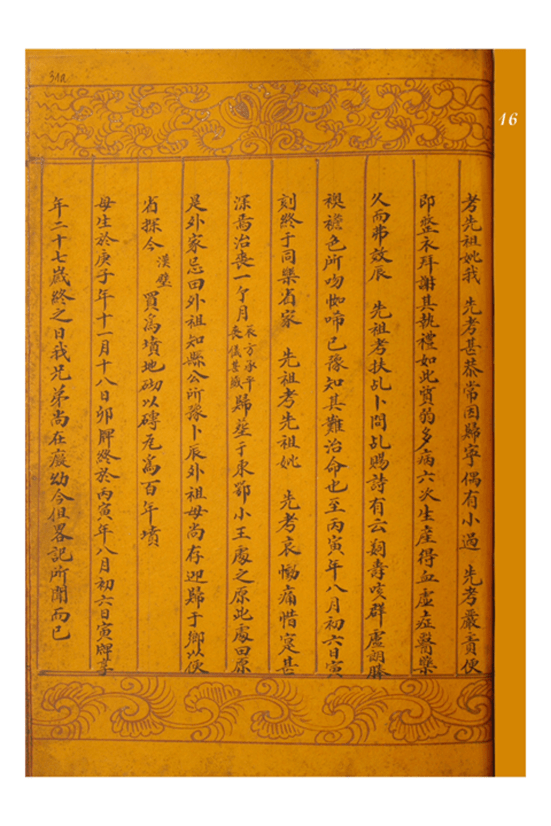 31a
16
考先祖妣我 先考甚恭常因歸寧偶有小過 先考嚴責使
即整衣拜謝其執禮如此質弱多病六次生産得血虛症醫藥
久而弗效辰 先祖考扶乩卜問乩賜詩有云 壽 群虛詞勝
襖襜色所吻 啼已豫知其難治命也至丙寅年八月初六日寅
刻終于同樂省家 先祖考先祖妣 先考哀慟痛惜寔甚
深焉治喪一个月辰方承平喪儀甚盛歸塟于東鄂小王處之原此處田原
是外家忌田外祖知縣公所豫卜辰外祖母尚存迎歸于鄉以便
省探今漢璧買爲墳地砌以磚瓦爲百年墳
母生於庚子年十一月十八日卯牌終於丙寅年八月初六日寅牌享
年二十七歲終之日我兄弟尚在癡幼今但畧記所聞而已